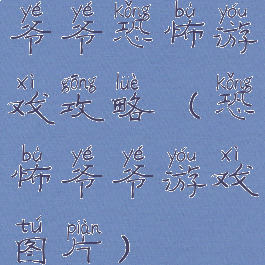 yé yé kǒng bù yóu
爷爷恐怖游
xì gōng lüè kǒng
戏攻略(恐
bù yé yé yóu xì
怖爷爷游戏
tú piàn
图片)